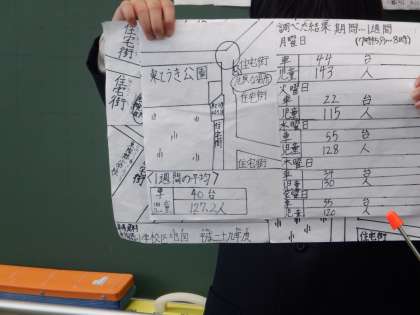 調べた結果 期間…1週間
月曜日 (7時45分～8時)
車 44 台
児童 143 人
火曜日
車 22 台
児童 115 人
水曜日
車 55 台
児童 128 人
木曜日
車 34 台
児童 130 人
金曜日
車 35 台
児童 120 人
住宅街
住宅街
公園
住宅街
住宅街
住宅街
住宅街
1週間の平均
車 40 台
児童 127.2人
学校区地図 平成二十九年度
住宅街